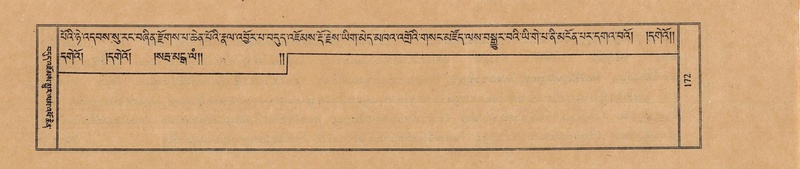 པོའི་ཉེ་འདབས་སུ་རང་བཞིན་རྫོགས་པ་ཆེན་པོའི་རྣལ་འབྱོར་པ་བདུད་འཇོམས་རྡོ་རྗེས་ཡིག་མེད་མཁའ་འགྲོའི་གསང་མཛོད་ལས་བསྒྱུར་བའི་ཡི་གེ་པ་ནི་མངོན་པར་དགའ་བའོ། །དགེའོ།།
དགེའོ། །དགེའོ། །སརྦ་མངྒ་ལཾ།། །།
172